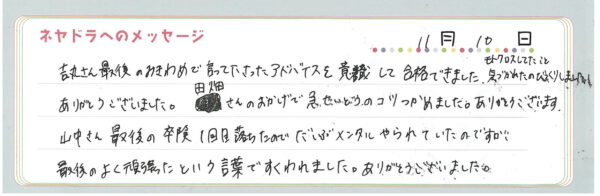 ネヤドラへのメッセージ
11月10日
吉丸さん最後のおきわめで言ってださったアドバイスを意識して合格できました。
モトクロスしてたこと
気づかれたのびっくりしました
ありがとうございました。田畑さんのおかげで急せいどうのコツつかめました。ありがとうございます。
山中さん最後の卒険1回目落ちたのでだいぶメンタルやられていたのですが
最後のよく頑張ったという言葉ですくわれました。ありがとうございました。